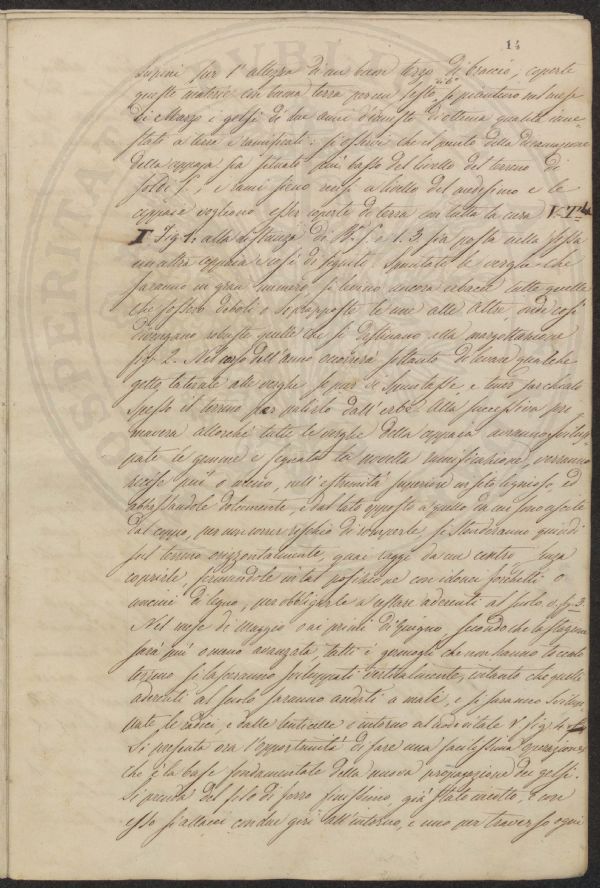 14
lupini per l'altezza di un buon terzo di braccio, coperte
queste materie con buona terra per un sesto si piantino nel mese
di Marzo i gelsi di due anni d'innesto di ottima qualità inne¬
stati a terra e ramificati: si osservi che il punto della diramazione
della ceppaja sia situato più basso del livello del terreno di
soldi e i rami sieno resi a livello del medesimo e le
ceppaie vogliono esser coperte di terra con tutta la cura V. T.la
I Fig. 1: alla distanza di Br. 1. 3. sia posta nella fossa
un altra ceppaia e così di seguito. Spuntate le verghe che
saranno in gran numero si levino ancora tutte quelle
che fossero deboli o soprapposte le une alle Altre onde così
divengano robuste quelle che si destinano alla margottazione
fig. 2. Nel corso dell'anno occorrerà soltanto di levare qualche
getto laterale alle verghe se pur vi spuntasse e tener sarchiato
spesso il terreno per pulirlo dall'erbe. Alla successiva pri
mavera allorchè tutte le verghe della ceppaia avranno svilup¬
pate le gemme e segnata la novella ramificazione, verranno
recise più o meno, nell'estremità superiore in sito legnoso, ed
abbassandole dolcemente, dal lato opposto a quello da cui sono uscite
dal ceppo, per non correr rischio di romperle, si stenderanno quindi
sul terreno orizzontalmente, quai raggi da un centro senza
coprirle, fermandole in tal posizione con idonei forchetti o
uncini di legno, per obbligarle a restare aderenti al suolo v. fig. 3.
Nel mese di Maggio o ai primi di Giugno, secondo che la stagione
sarà più o meno avanzata tutti i germogli che non hanno toccato
terreno si saranno sviluppati verticalmente, intanto che quelli
aderenti al suolo saranno andati a male, e si saranno svilup
pate le radici, e dalle lenticelle e intorno al nodo vitale V. fig. 4.
Si presenta ora l'opportunità di fare una facilissima operazione
che è la base fondamentale della nuova propagazione dei gelsi.
Si prenda del filo di ferro finissimo, già stato cotto, e con
esso si allacci con due giri all'intorno, e uno per traverso ogni